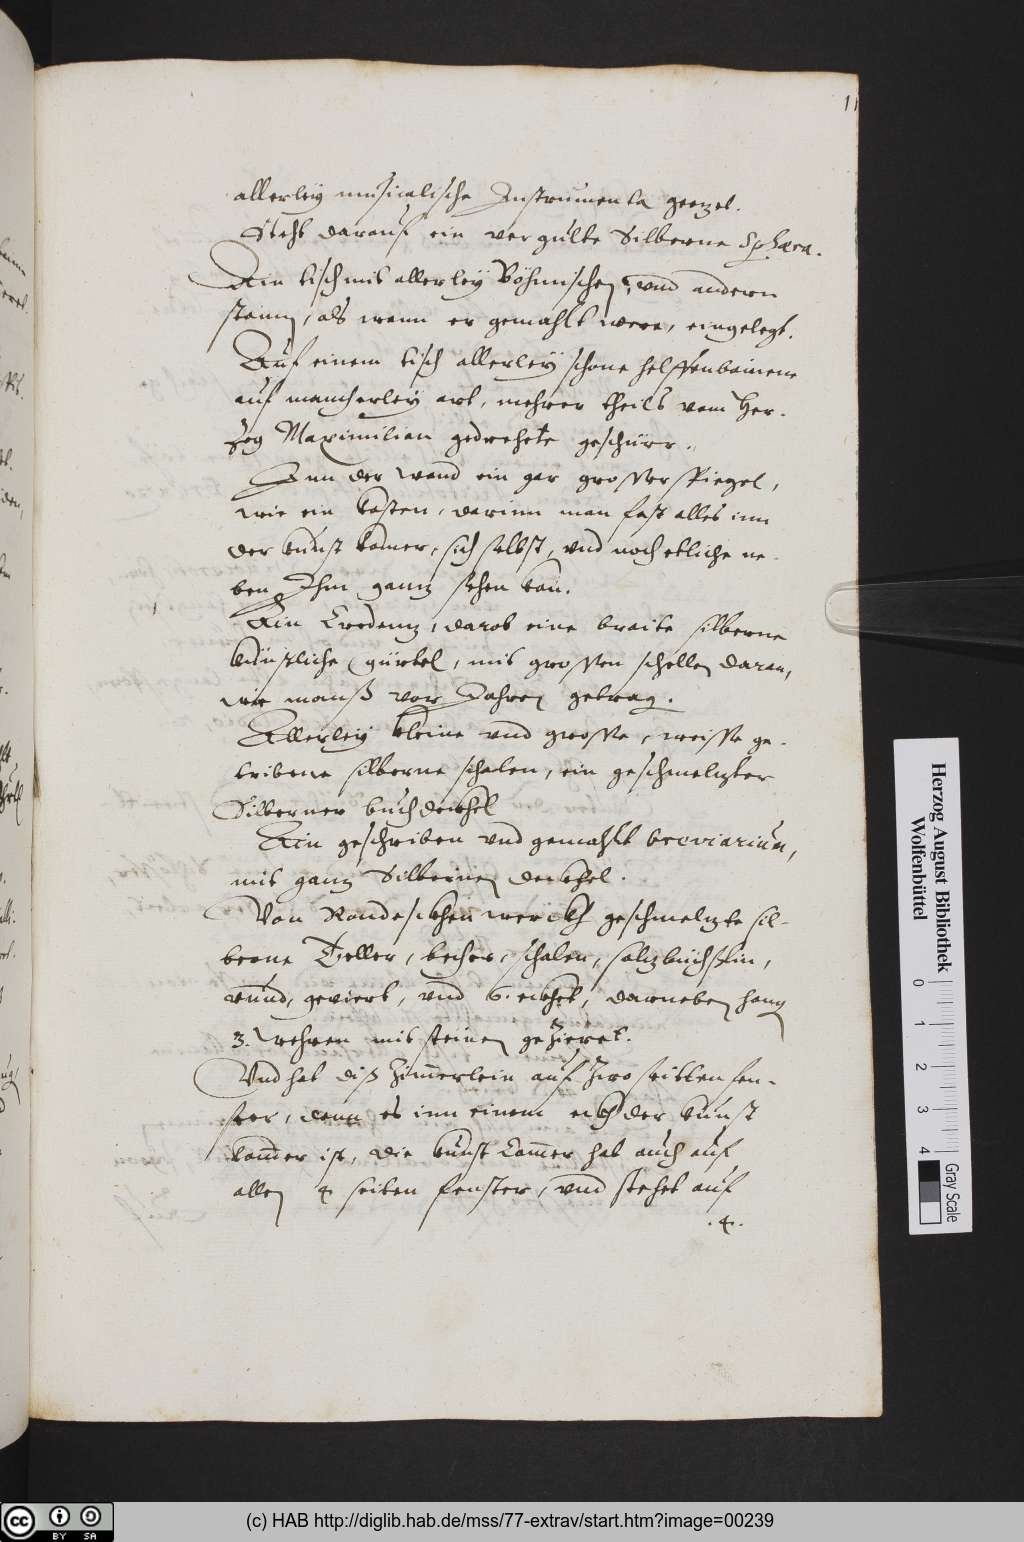 11
allerley musicalische Instrumenta geezet.
Steht darauf ein vergulte Silberne Sphæra.
Ain tisch mit allerley Böhmischen, vnd andern
stainen, als wann er gemahlt were, eingelegt.
Auf einem tisch allerley schone helffenbainene
auf mancherley art, mehrer theils vom Her-
zog Maximilian gedrehete geschürr.
Inn der wand ein gar grosser spiegel,
wie ein kasten, darinn man fast alles inn
der kunst kamer, sich selbst, vnd noch etliche ne-
ben Ihm gantz sehen kan.
Ain Credentz, darob eine braite silberne
künstliche gürtel, mit grossen schellen daran,
wie manß vor Jahren getrag.
Allerley kleine vnd grosse, weisse ge-
tribene silberne schalen, ein geschmeltzter
Silberner buchdeckhel
Ain geschriben vnd gemahlt breviarium,
mit gantz Silbernen deckhel.
Von geschmeltzte sil-
berne Teller, becher, schalen, saltzbüchslin,
rund, geviert, vnd 6. eckhet, darneben hang
3. wehren mit steinen gezieret.
Vnd hat diß Zimmerlein auf zwo seitten fen-
ster, denn es inn einem eckh der kunst
kam̅er ist, die kunst cam̅er hat auch auf
allen 4 seiten fenster, vnd stehet auf
.4.
Herzog August Bibliothek
Wolfenbüttel
0 1 2 3 4
Gray Scale
cc BY SA
(c) HAB http://diglib.hab.de/mss/77-extrav/start.htm?image=00239